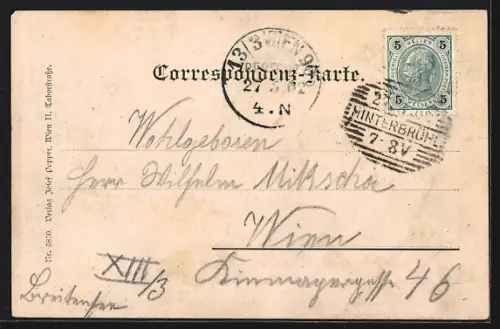 13/3 WIEN 9
27.5.02
4.N
Correspondenz-Karte.
5 HELLER 5
5 HELLER 5
HINTERBRÜHL
7-8V
Wohlgeboren
Herr Wilhelm Mikscha
Wien
XIII/3
Breitensee
46
Nr. 5859. Verlag Josef Popper, Wien II. Taborstraße.